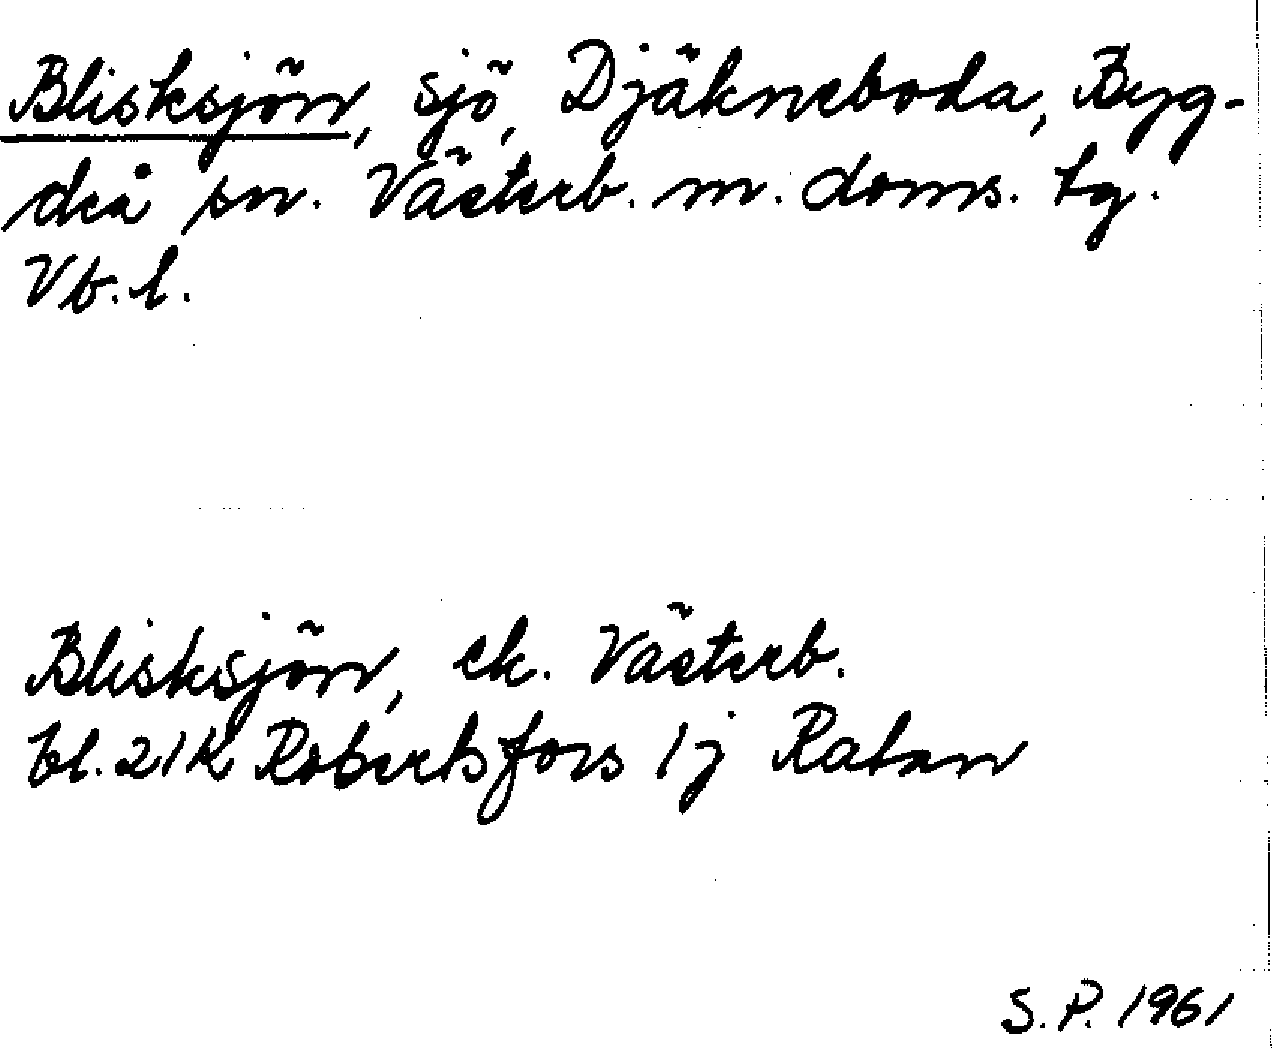 Blisksjön, sjö, Djäkneboda, Byg-
deå sn. Västerb. m. doms. tg.
Vb. l.
Blisksjön, ek. Västerb.
bl. 21K Robertsfors 1j Ratan
S.P. 1961